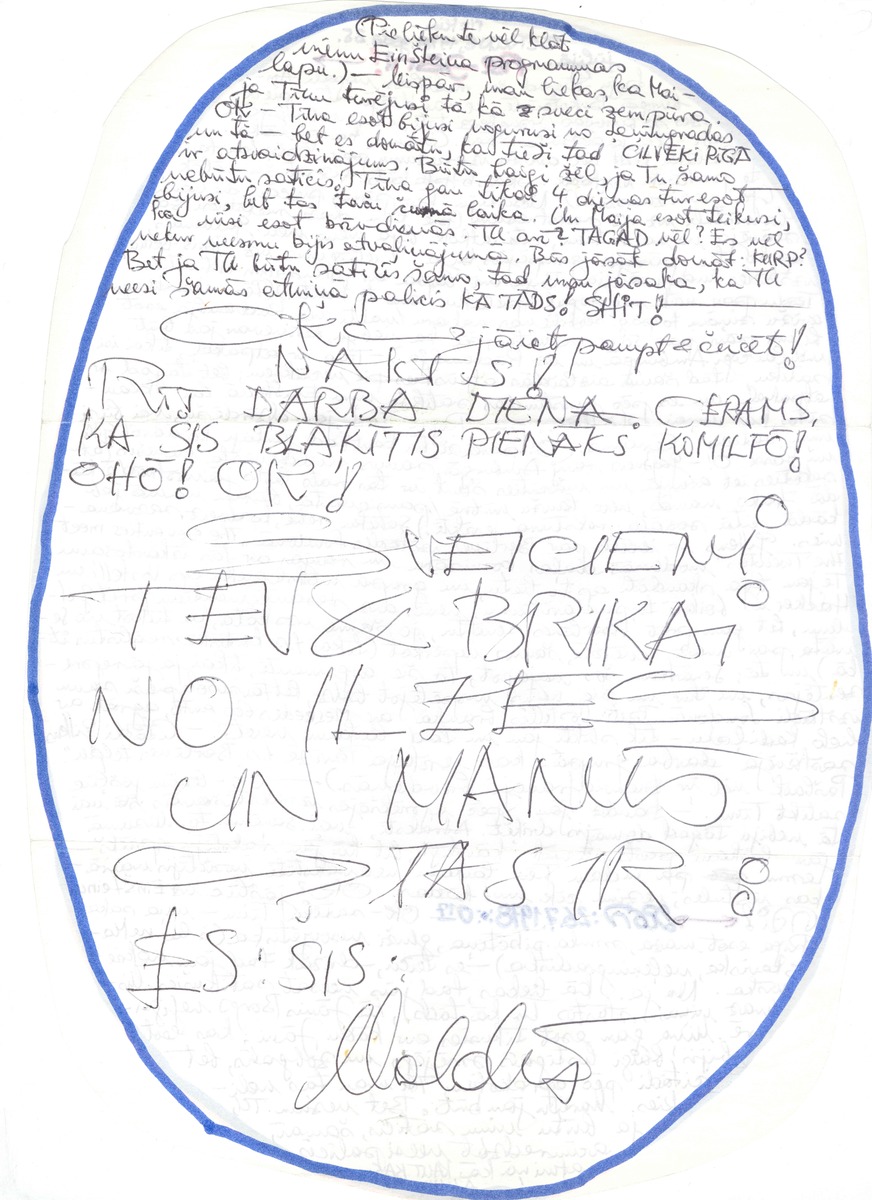 (Pielieku te vēl klāt
vienu Einšteina programmas
lapu.) — Vispār, man liekas, ka Mai-
ja Tīnu turējusi tā kā sveci zem pūra.
OK — Tīna esot bijusi nogurusi no Ļeņingradas
un tā — bet es domātu, ka tieši tad CILVĒKI RĪGĀ
ir atsvaidzinājums. Būtu baigi žēl, ja Tu šamo
nebūtu saticis. Tīna gan tikai 4 dienas tur esot
bijusi, bet tas taču laika. Un Maija esot teikusi,
ka visi esot brīvdienās. TU arī? TAGAD vēl? Es vēl
nekur neesmu bijis atvaļinājumā. Būs jāsāk domāt: KURP?
Bet ja TU būtu saticis šamo, tad man jāsaka, ka TU
neesi šamās atmiņā palicis KĀ TĀDS! SHIT!
OK — jāiet pampt & čučēt!
NAKTIS!
RĪT DARBA DIENA. CERAMS,
KA ŠIS BLAKĪTIS PIENĀKS KOMILFŌ!
OHŌ! OK!!
SVEICIENI
TEV & BRIKAI
NO ILZES
UN MANIS
TAS IR:
ES: ŠIS:
Valdis